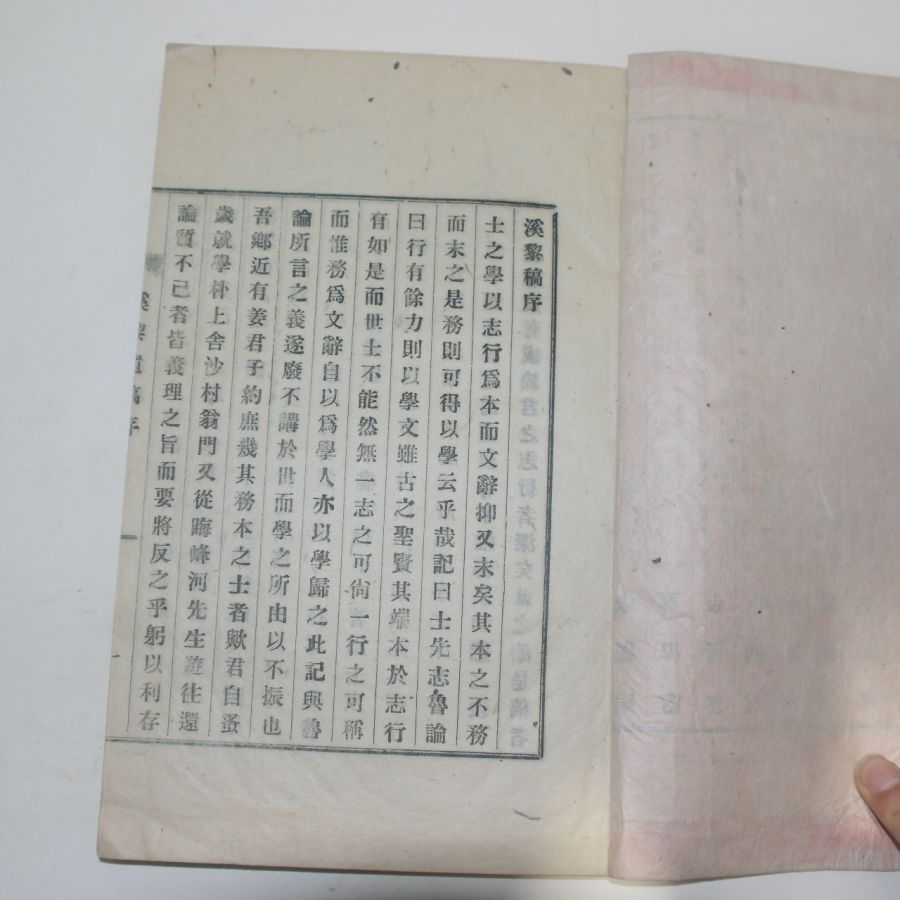 溪黎稿序
士之學以志行爲本而文辭抑又末矣其本之不務
而末之是務則可得以學云乎哉記曰士先志魯論
曰行有餘力則以學文雖古之聖賢其端本於志行
有如是而世士不能然無一志之可尙一行之可稱
而惟務爲文辭自以爲學人亦以學歸之此記與魯
論所言之義遂廢不講於世而學之所由以不振也
吾鄕近有姜君子約庶幾其務本之士者歟君自蚤
歲就學朴上舍沙村翁門又從晦峰河先生遊往還
論質不已者皆義理之旨而要將反之乎躬以利存
溪黎遺稿序